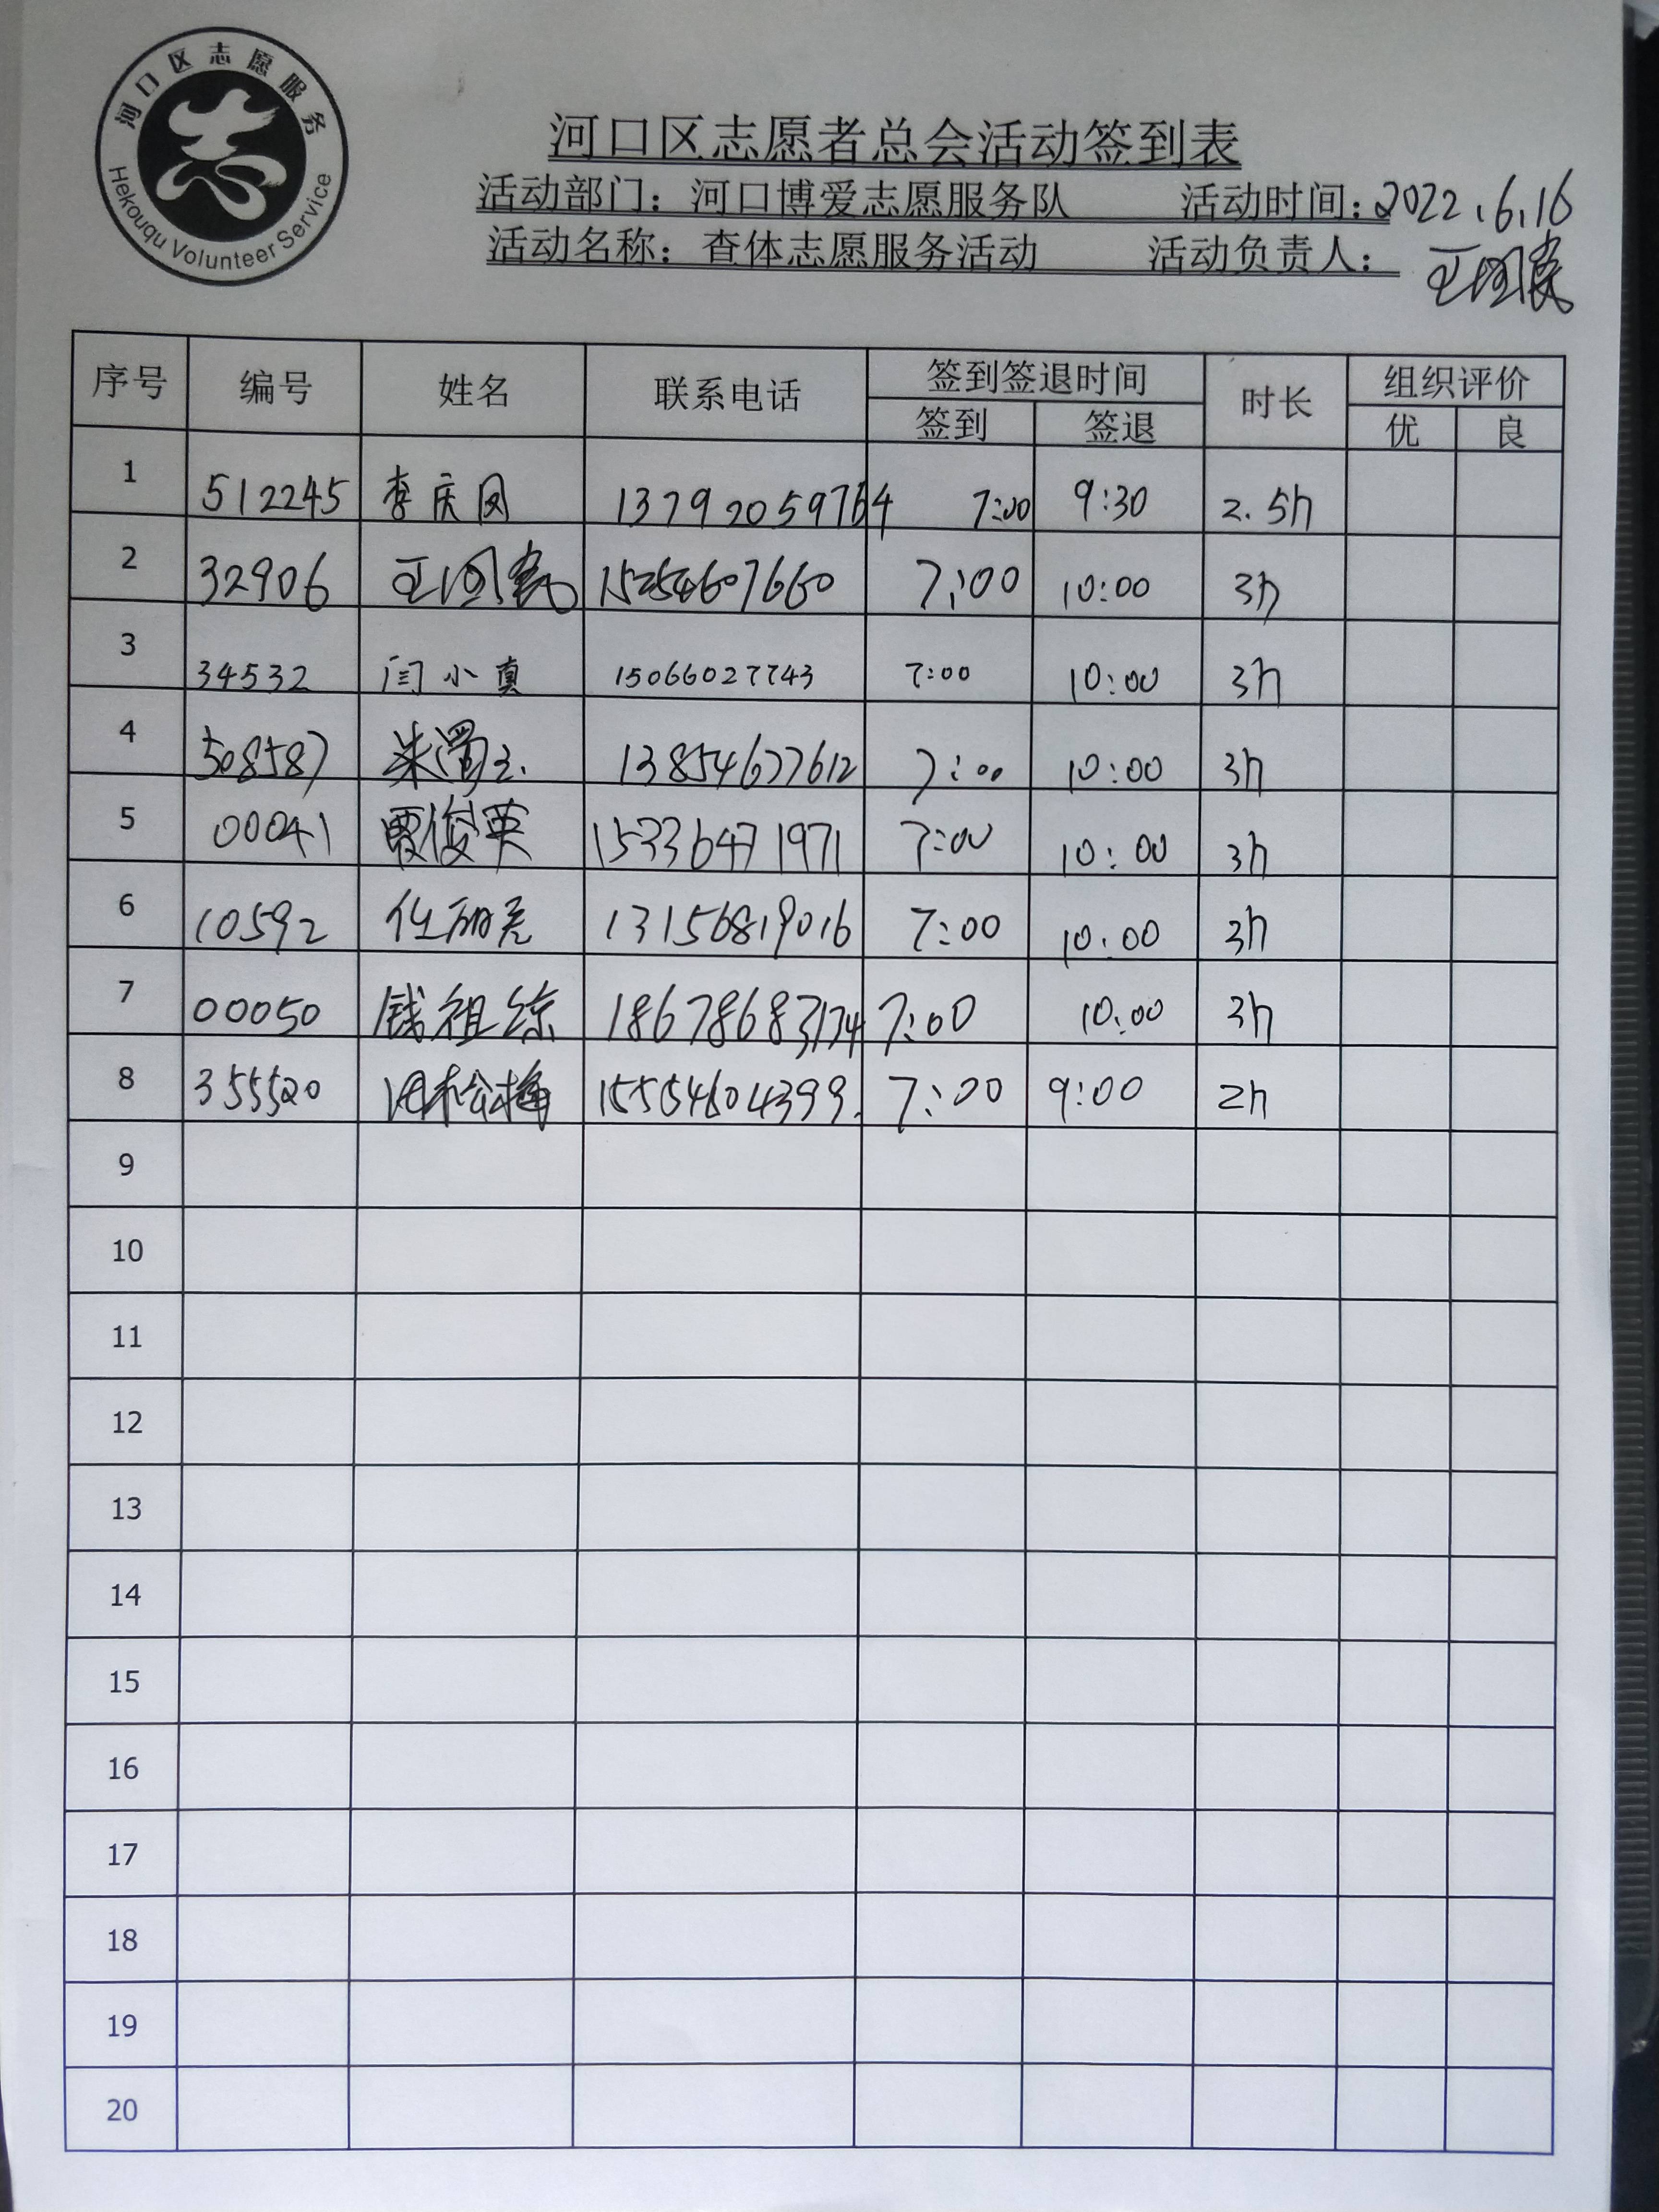 河口区志愿服务
Hekouqu Volunteer Service
河口区志愿者总会活动签到表
活动部门：河口博爱志愿服务队 活动时间：2022.6.16
活动名称：查体志愿服务活动 活动负责人：
序号 编号 姓名 联系电话 签到签退时间 时长 组织评价
签到 签退 优 良
1 512245 李庆凤 13792059764 7:00 9:30 2.5h
2 32906 15254607660 7:00 10:00 3h
3 34532 闫小真 15066027743 7:00 10:00 3h
4 508587 13854677612 7:00 10:00 3h
5 00041 贾俊英 15336471971 7:00 10:00 3h
6 10592 任丽亮 13156819016 7:00 10:00 3h
7 00050 钱祖综 18678683174 7:00 10:00 3h
8 355520 15554604399. 7:00 9:00 2h
9
10
11
12
13
14
15
16
17
18
19
20